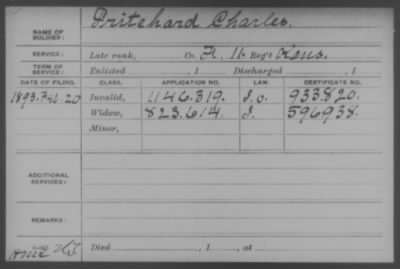 NAME OF SOLDIER: Pritchard Charles.
SERVICE: Late rank, Co. A, 11 Reg't Kans.
TERM OF SERVICE: Enlisted , 1 Discharged , 1
DATE OF FILING. CLASS. APPLICATION NO. LAW. CERTIFICATE NO.
1893. Feb 20 Invalid, 1146.319. 933820.
Widow, 823.614. 596938.
Minor,
ADDITIONAL SERVICES:
REMARKS:
Died , 1 , at